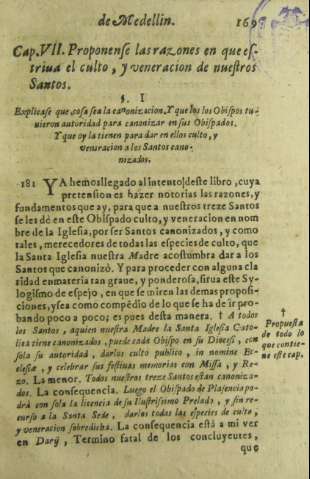 de Medellin. 169
Cap. VII. Proponense las razones en que es-
triua el culto, y veneracion de nuestros
Santos.
§. I
Explicase que cosa sea la canonizacion. Y que los los Obispos tu-
uieron autoridad para canonizar en sus Obispados.
Y que oy la tienen para dar en ellos culto, y
veneracion a los Santos cano-
nizados.
181 YA hemos llegado al intento deste libro, cuya
pretension es hazer notorias las razones, y
fundamentos que ay, para que a nuestros treze Santos
se les dè en este Obispado culto, y veneracion en nom
bre de la Iglesia, por ser Santos canonizados, y como
tales, merecedores de todas las especies de culto, que
la Santa Iglesia nuestra Madre acostumbra dar a los
Santos que canonizò. Y para proceder con alguna cla
ridad en materia tan graue, y ponderosa, sirua este Sy-
logismo de espejo, en que se miren las demas proposi-
ciones, y sea como compēdio de lo que se ha de ir pro-
bando poco a poco; es pues desta manera. † A todos
los Santos, a quien nuestra Madre la Santa Iglesia Cato-
lica tiene canonizados, puede cada Obispo en su Diocesi, con
sola su autoridad, darles culto publico, in nomine Ec-
clesiæ, y celebrar sus festiuas memorias con Missa, y Re-
zo. La menor. Todos nuestros treze Santos estan canoniza-
dos. La consequencia. Luego el Obispado de Plasencia po-
drà con sola la licencia de su Ilustrissimo Prelado, y sin re-
curso a la Santa Sede, darlos todas las especies de culto,
y veneracion sobredicha. La consequencia està a mi ver
en Darij, Termino fatal de los concluyentes,
que
†
Propuesta
de todo lo
que contie-
ne este cap.